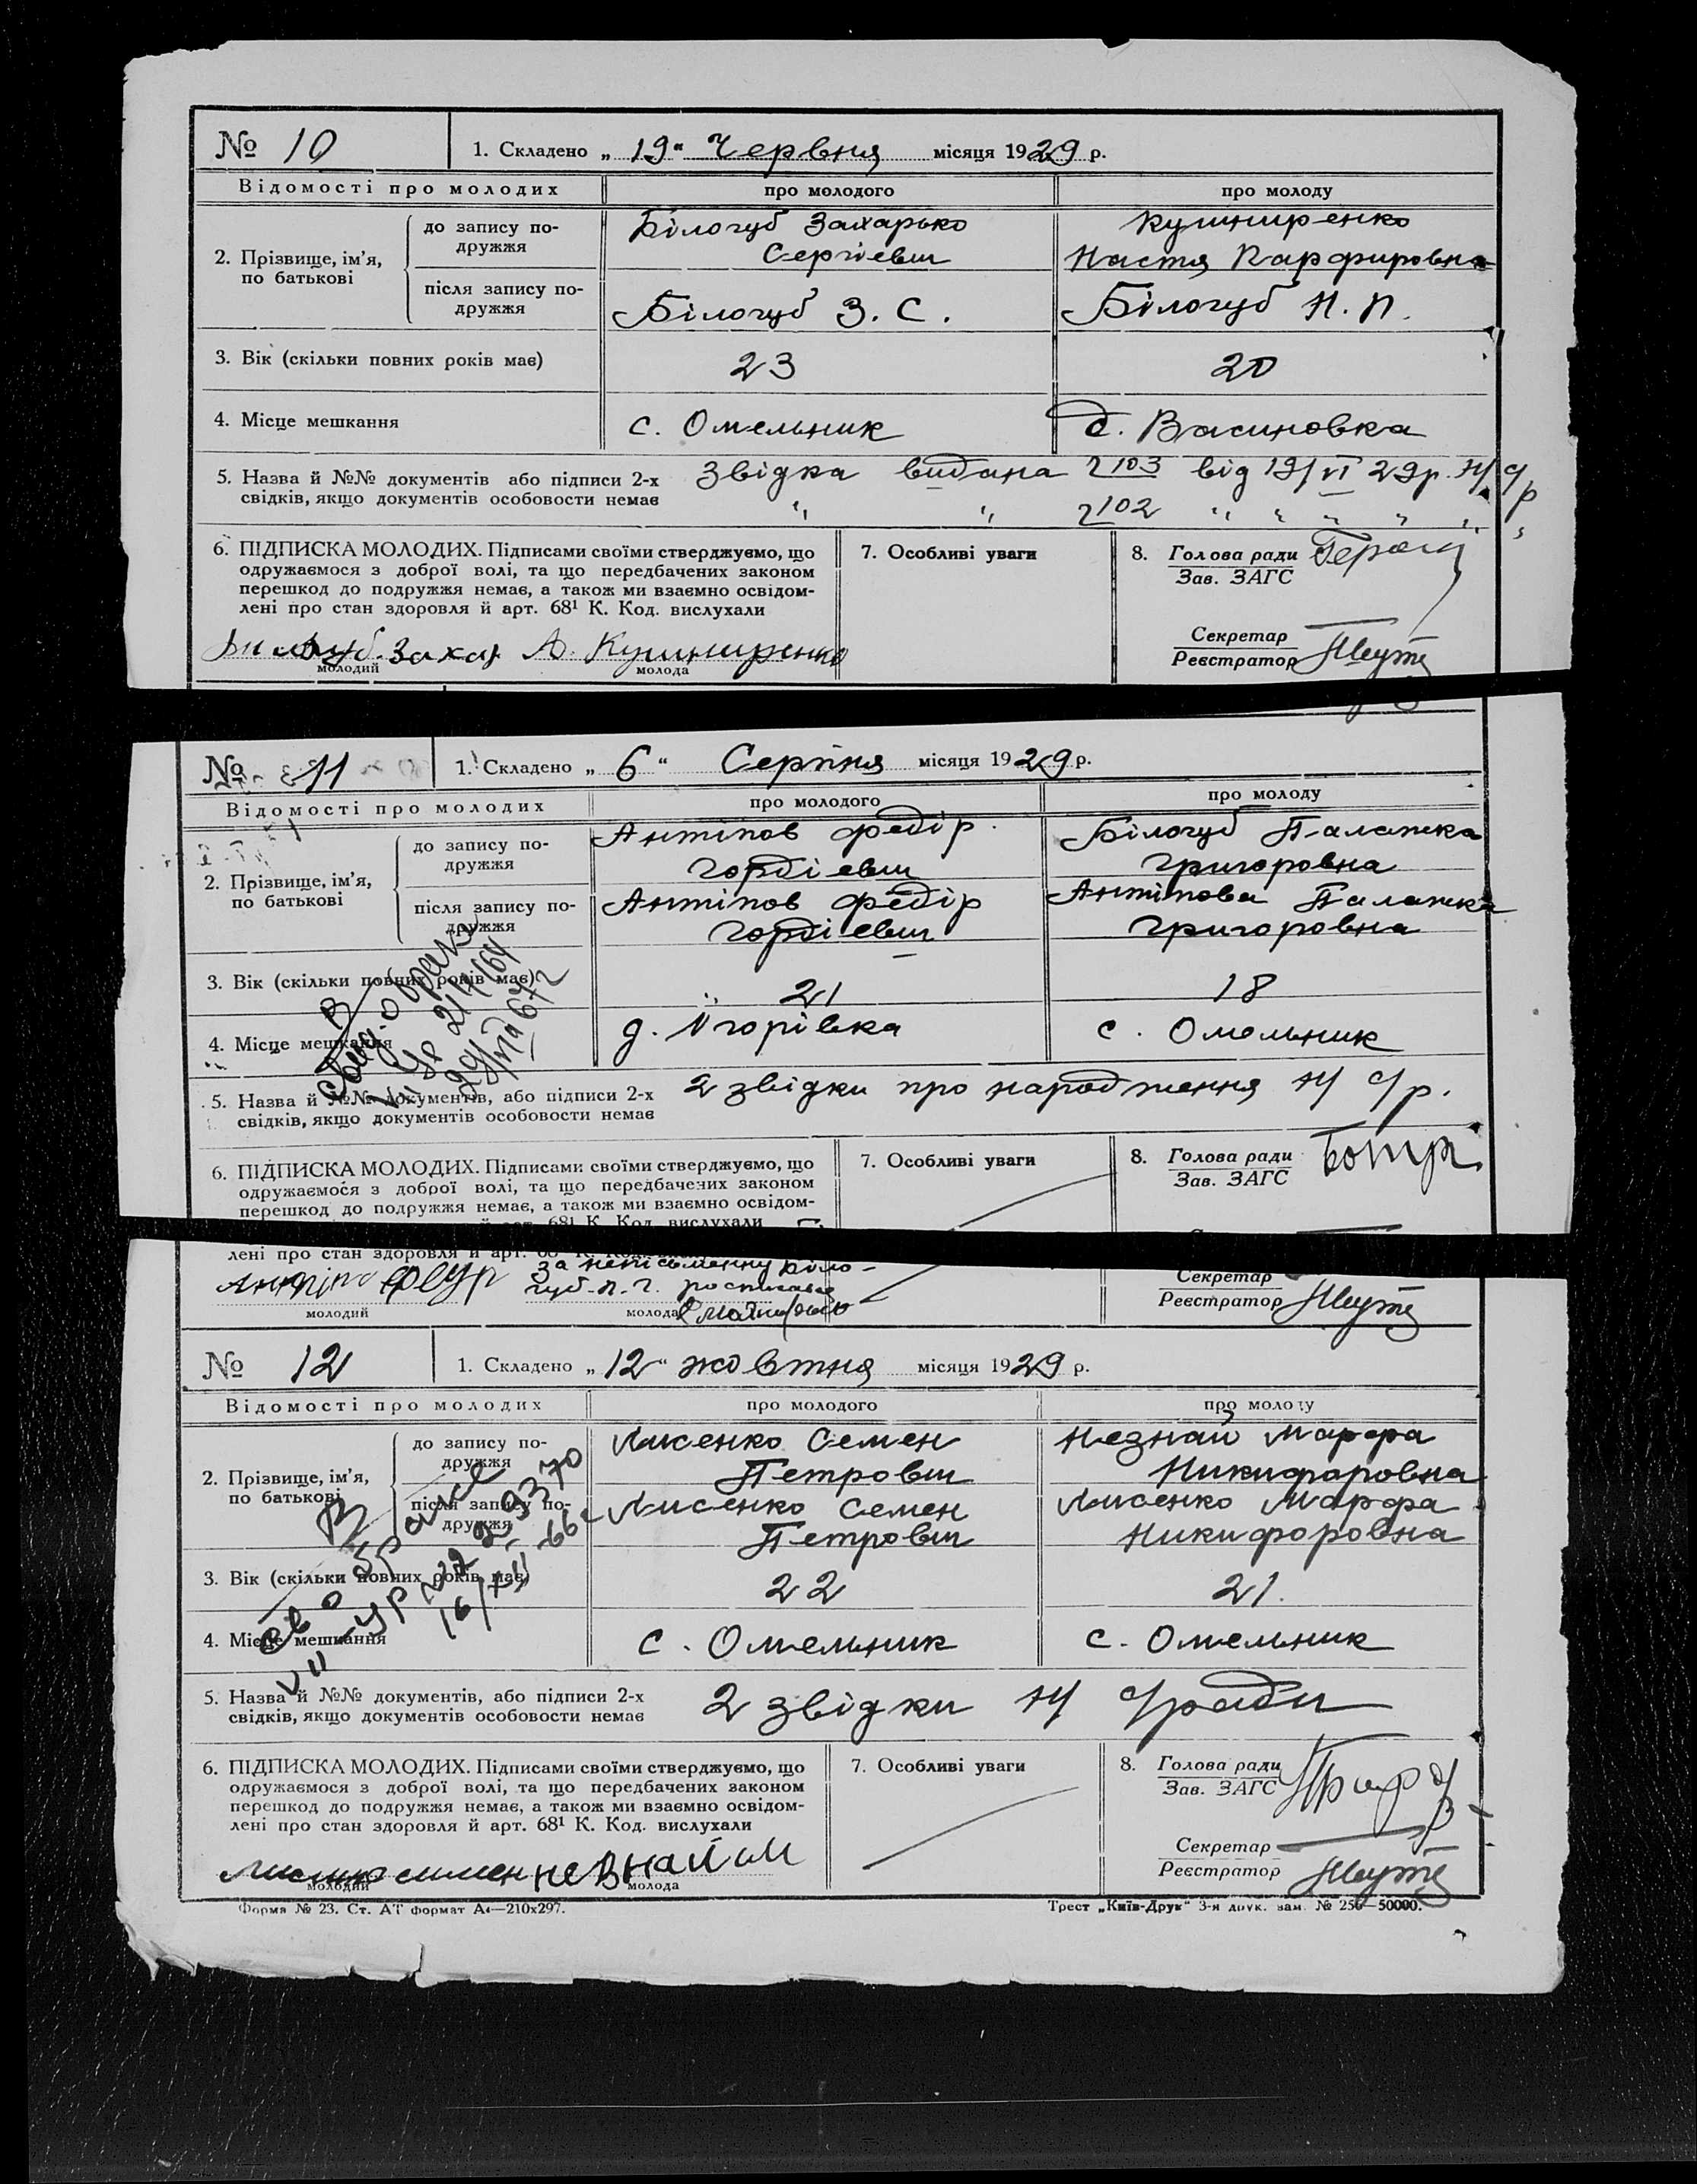 № 10 1. Складено „ 19 “ Червня місяця 1929 р.
Відомості про молодих про молодого про молоду
2. Прізвище, ім’я, по батькові
до запису подружжя
Білогуб Захарько
Сергіевич
Кушниренко
Настя Парфировна
після запису подружжя
Білогуб З. С.
Білогуб Н. П.
3. Вік (скільки повних років має) 23 20
4. Місце мешкання с. Омельник
5. Назва й №№ документів або підписи 2-х Звідка видана 103 від 19/VI 29р.
свідків, якщо документів особовости немає „ „ 102 „ „ „ „ „
6. ПІДПИСКА МОЛОДИХ. Підписами своїми стверджуємо, що
одружаємося з доброї волі, та що передбачених законом
перешкод до подружжя немає, а також ми взаємно освідом-
лені про стан здоровля й арт. 68¹ К. Код. вислухали
Захар Кушниренко
молодий молода
7. Особливі уваги
8. Голова ради
Зав. ЗАГС
Секретар
Реєстратор
№ 11 1. Складено „ 6 “ Серпня місяця 1929 р.
Відомості про молодих про молодого про молоду
2. Прізвище, ім’я, по батькові
до запису подружжя
Антіпов Федір
Гордіевич
Білогуб Палажка
Григоровна
після запису подружжя
Антіпов Федір
Гордіевич
Антіпова Палажка
Григоровна
3. Вік (скільки повних років має) 21 18
4. Місце мешкання с. Омельник
5. Назва й №№ документів, або підписи 2-х 2 звідки про народження
свідків, якщо документів особовости немає
6. ПІДПИСКА МОЛОДИХ. Підписами своїми стверджуємо, що
одружаємося з доброї волі, та що передбачених законом
перешкод до подружжя немає, а також ми взаємно освідом-
лені про стан здоровля й арт. 68¹ К. Код. вислухали
за неписьменну Біло-
губ П. Г.
молодий молода
7. Особливі уваги
8. Голова ради
Зав. ЗАГС
Секретар
Реєстратор
№ 12 1. Складено „ 12 “ жовтня місяця 1929 р.
Відомості про молодих про молодого про молоду
2. Прізвище, ім’я, по батькові
до запису подружжя
Лисенко Семен
Петрович
Незнай Марфа
Никифоровна
після запису подружжя
Лисенко Семен
Петрович
Лисенко Марфа
Никифоровна
3. Вік (скільки повних років має) 22 21.
4. Місце мешкання с. Омельник с. Омельник
5. Назва й №№ документів, або підписи 2-х 2 звідки
свідків, якщо документів особовости немає
6. ПІДПИСКА МОЛОДИХ. Підписами своїми стверджуємо, що
одружаємося з доброї волі, та що передбачених законом
перешкод до подружжя немає, а також ми взаємно освідом-
лені про стан здоровля й арт. 68¹ К. Код. вислухали
молодий молода
7. Особливі уваги
8. Голова ради
Зав. ЗАГС
Секретар
Реєстратор
Форма № 23. Ст. АТ формат А4—210x297. Трест „Київ-Друк“ 3-я друк. зам. № 256—50000.